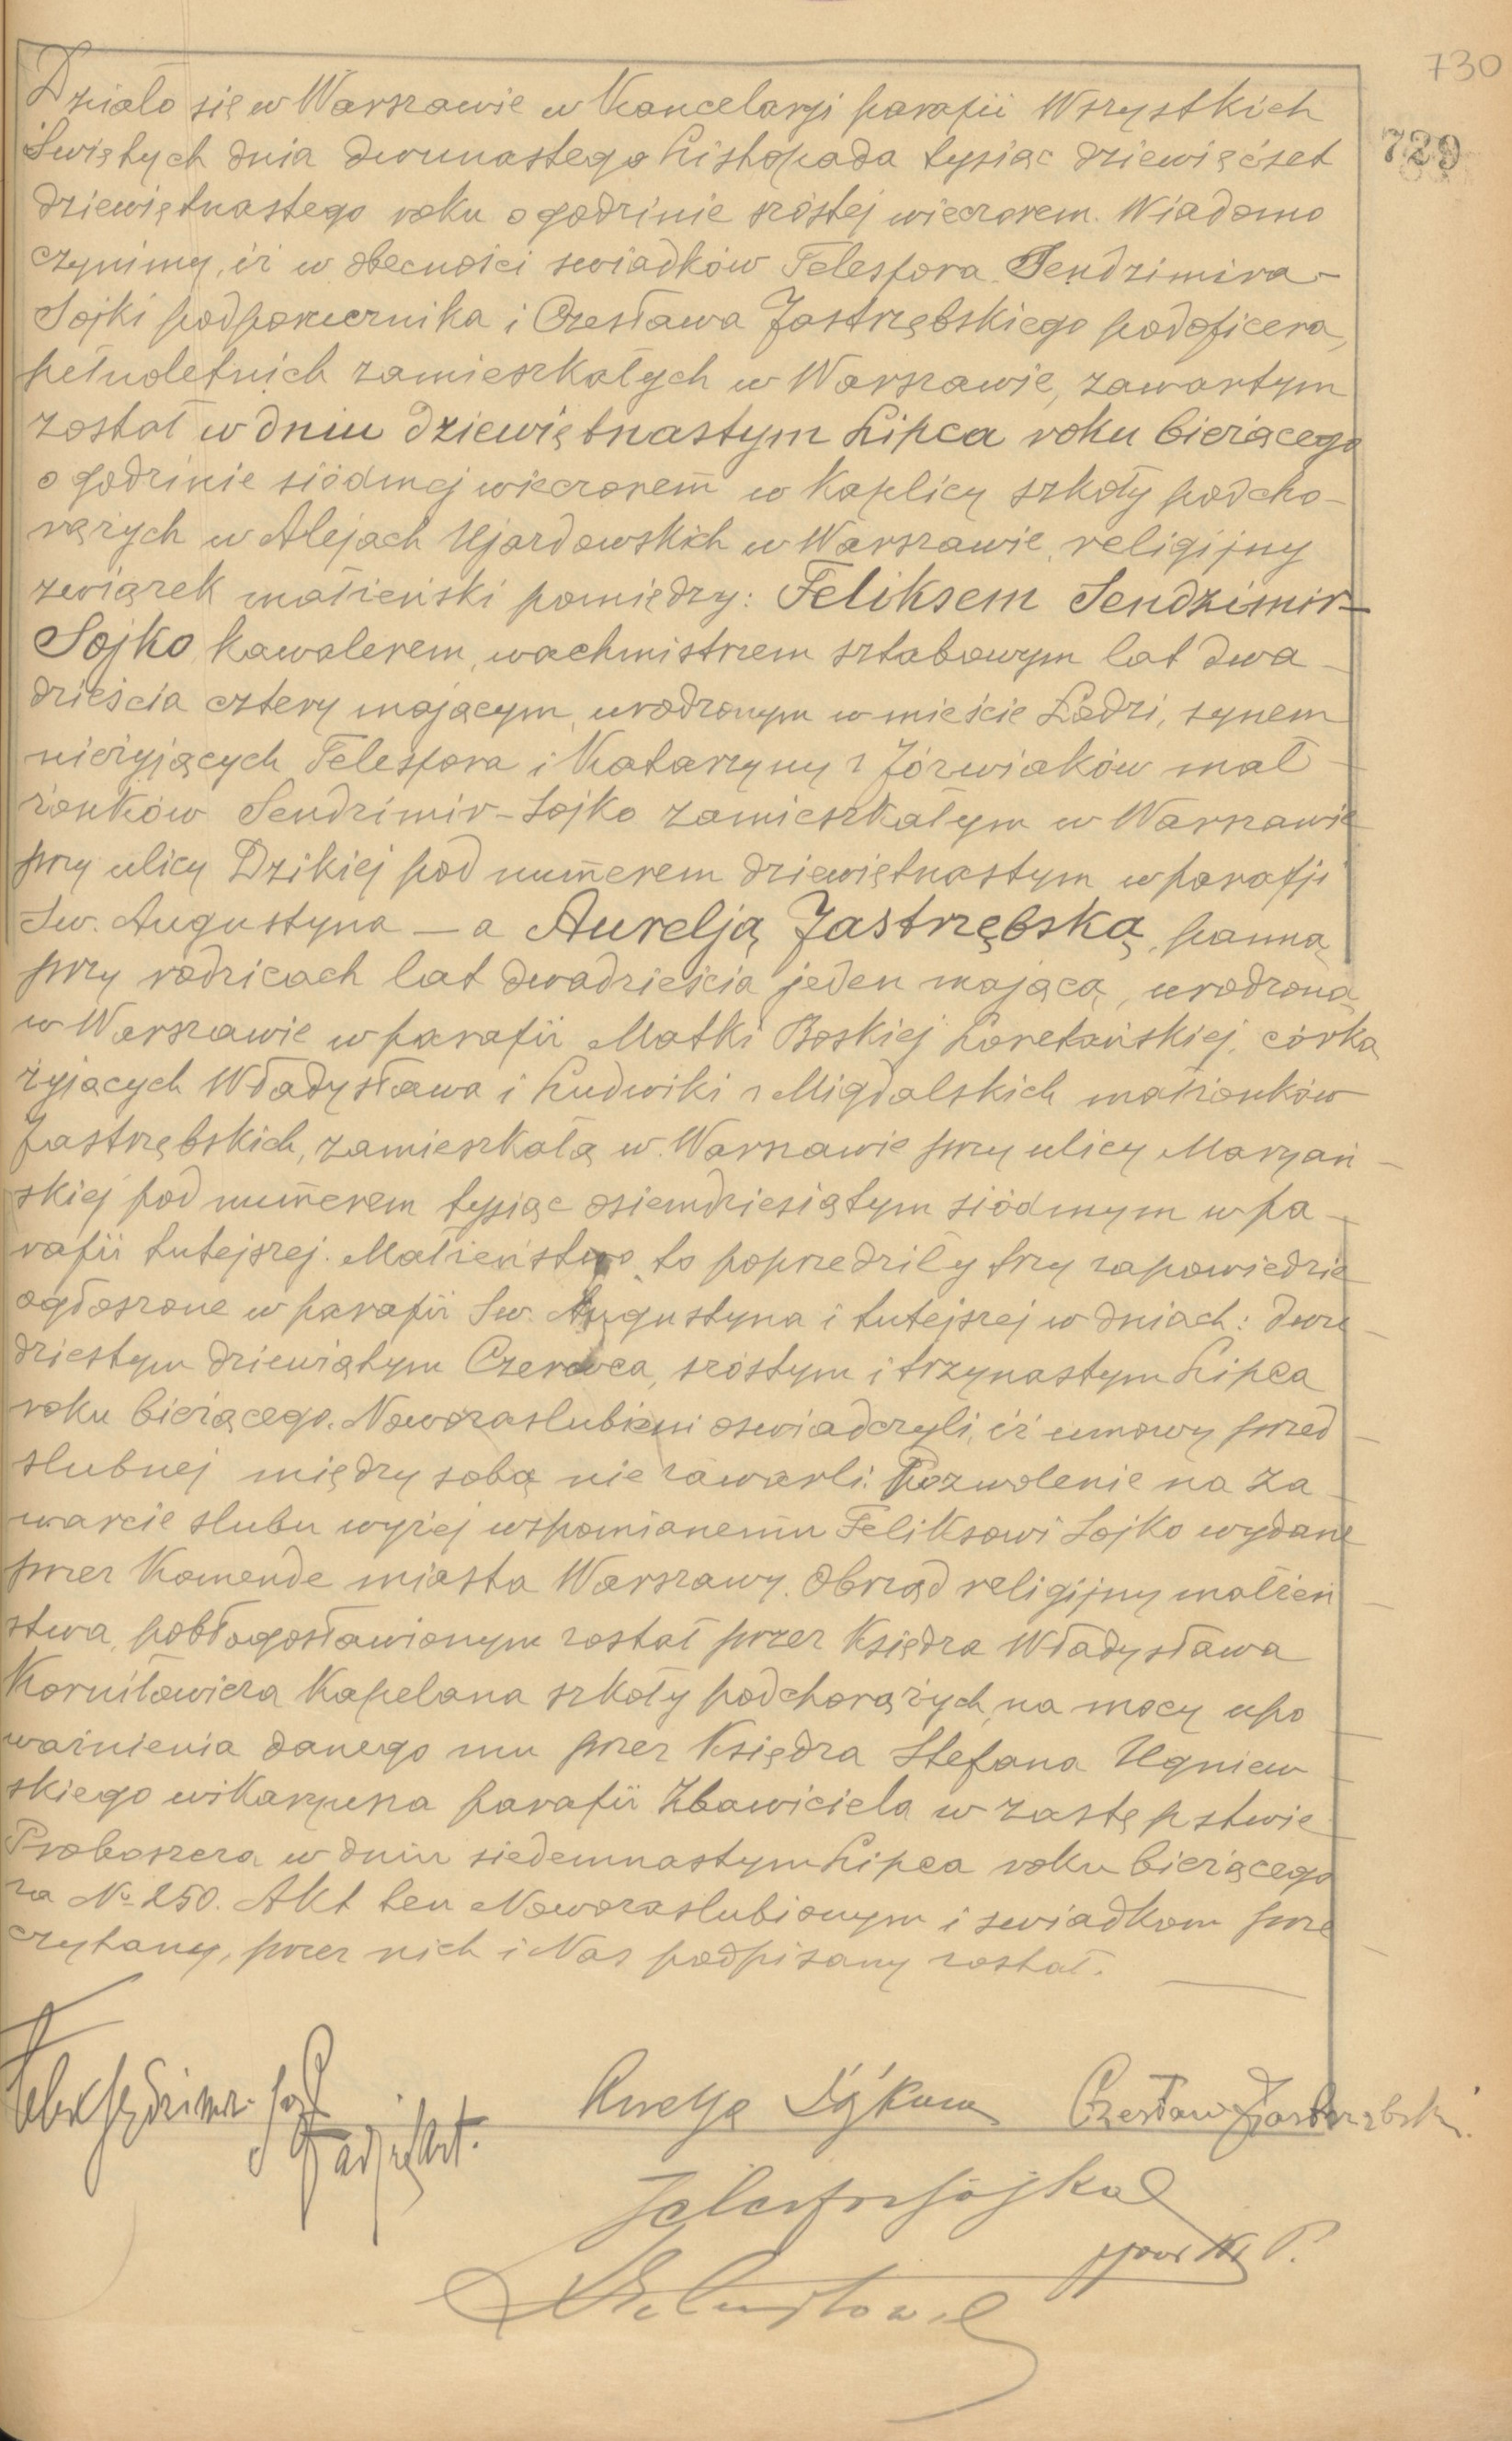 730
729
Działo się w Warszawie w Kancelaryi parafii Wszystkich
Świętych dnia dwunastego Listopada tysiąc dziewięćset
dziewiętnastego roku o godzinie szóstej wieczorem. Wiadomo
czynimy, iż w obecności swiadków Telesfora Sendzimira-
Sojki podporucznika i Czesława Jastrzębskiego podoficera,
pełnoletnich zamieszkałych w Warszawie, zawartym
został w dniu dziewiętnastym Lipca roku bieżącego
o godzinie siódmej wieczorem w Kaplicy szkoły podcho-
rążych w Alejach Ujazdowskich w Warszawie religijny
związek małżeński pomiędzy: Feliksem Sendzimir-
Sojko kawalerem, wachmistrzem sztabowym lat dwa-
dzieścia cztery mającym, urodzonym w mieście Łodzi, synem
nieżyjących Telesfora i Katarzyny z Jóźwiaków mał-
żonków Sendzimir-Sojko zamieszkałym w Warszawie
przy ulicy Dzikiej pod numerem dziewiętnastym w parafji
Św. Augustyna — a Aurelją Jastrzębską, panną
przy rodzicach lat dwadzieścia jeden mającą, urodzoną
w Warszawie w parafii Matki Boskiej Loretańskiej, córką
żyjących Władysława i Ludwiki z Migdalskich małżonków
Jastrzębskich, zamieszkałą w Warszawie przy ulicy Maryań-
skiej pod numerem tysiąc osiemdziesiątym siódmym w pa-
rafii tutejszej. Małżeństwo to poprzedziły trzy zapowiedzie
ogłoszone w parafii Św. Augustyna i tutejszej w dniach: dwu-
dziestym dziewiątym Czerwca, szóstym i trzynastym Lipca
roku bieżącego. Nowozaslubieni oswiadczyli, iż umowy przed-
slubnej między sobą nie zawarli. Pozwolenie na za-
warcie slubu wyżej wspomianemu Feliksowi Sojko wydane
przez Komende miasta Warszawy. Obrząd religijny małżeń-
stwa, pobłogosławionym został przez Księdza Władysława
Korniłowicza Kapelana szkoły podchorążych, na mocy upo-
ważnienia danego mu przez Księdza Stefana Ugniew-
skiego wikaryusza parafii Zbawiciela w zastępstwie
Proboszcza w dniu siedemnastym Lipca roku bieżącego
za № 250. Akt ten Nowozaslubionym i swiadkom prze-
czytany, przez nich i Nas podpisany został.
Czesław Jastrzębski